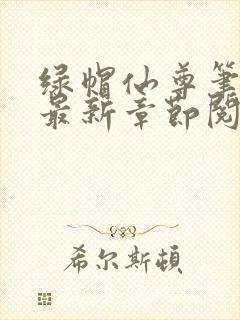 绿帽仙尊筆
最新章節閱
希尔斯頓